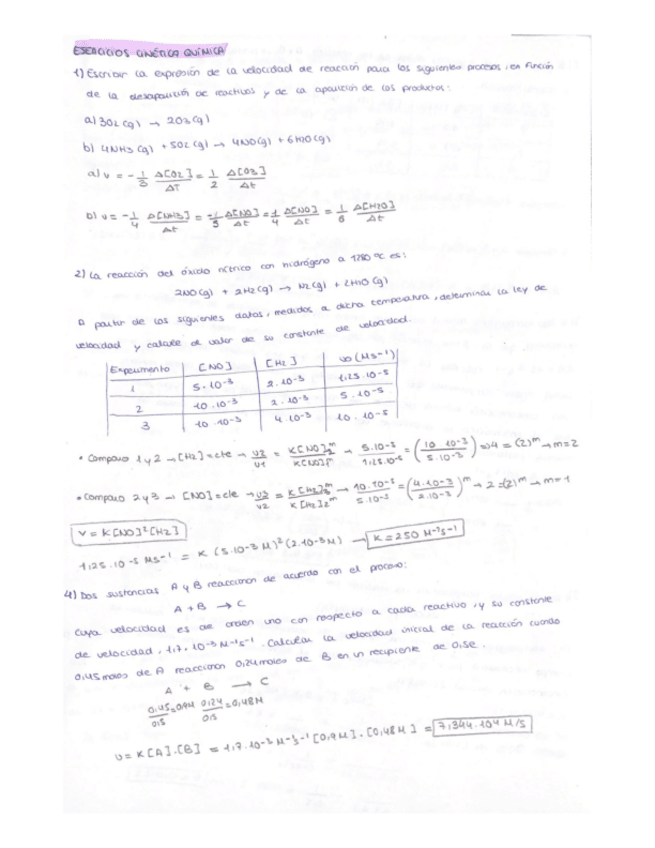 EJERCICIOS CINÉTICA QUÍMICA
1) Escribir la expresión de la velocidad de reacción para los siguientes procesos, en función
de la desaparición de reactivos y de la aparición de los productos:
a) 3O2(g) → 2O3(g)
b) 4NH3(g) + 5O2(g) → 4NO(g) + 6H2O(g)
a) v = - 1/3 Δ[O2]/ΔT = 1/2 Δ[O3]/Δt
b) v = - 1/4 Δ[NH3]/Δt = -1/5 Δ[NO]/Δt = 1/4 Δ[NO]/Δt = 1/6 Δ[H2O]/Δt
2) La reacción del óxido nítrico con hidrógeno a 1280 ºC es:
2NO(g) + 2H2(g) → N2(g) + 2H2O(g)
A partir de los siguientes datos, medidos a dicha temperatura, determinar la ley de
velocidad y calcule el valor de su constante de velocidad.
Experimento [NO] [H2] vo (Ms-1)
1 5·10-3 2·10-3 1,25·10-5
2 10·10-3 2·10-3 5·10-5
3 10·10-3 4·10-3 10·10-5
• Comparo 1 y 2 → [H2] = cte → v2/v1 = K[NO]2m/K[NO]1m → 5·10-5/1,25·10-5 = (10·10-3/5·10-3) ⇒ 4 = (2)m → m=2
• Comparo 2 y 3 → [NO] = cte → v3/v2 = K[H2]3m/K[H2]2m → 10·10-5/5·10-5 = (4·10-3/2·10-3)m → 2=(2)m → m=1
V = K[NO]2[H2]
1,25·10-5 Ms-1 = K (5·10-3 M)2 (2·10-3 M) → K = 250 M-2s-1
4) Dos sustancias A y B reaccionan de acuerdo con el proceso:
A + B → C
Cuya velocidad es de orden uno con respecto a cada reactivo, y su constante
de velocidad, 1,7·10-3 M-1s-1. Calcular la velocidad inicial de la reacción cuando
0,45 moles de A reaccionan 0,24 moles de B en un recipiente de 0,5L.
A + B → C
0,45/0,5 = 0,9M 0,24/0,5 = 0,48M
v = K[A]·[B] = 1,7·10-3 M-1s-1 [0,9M]·[0,48M] = 7,344·10-4 M/s